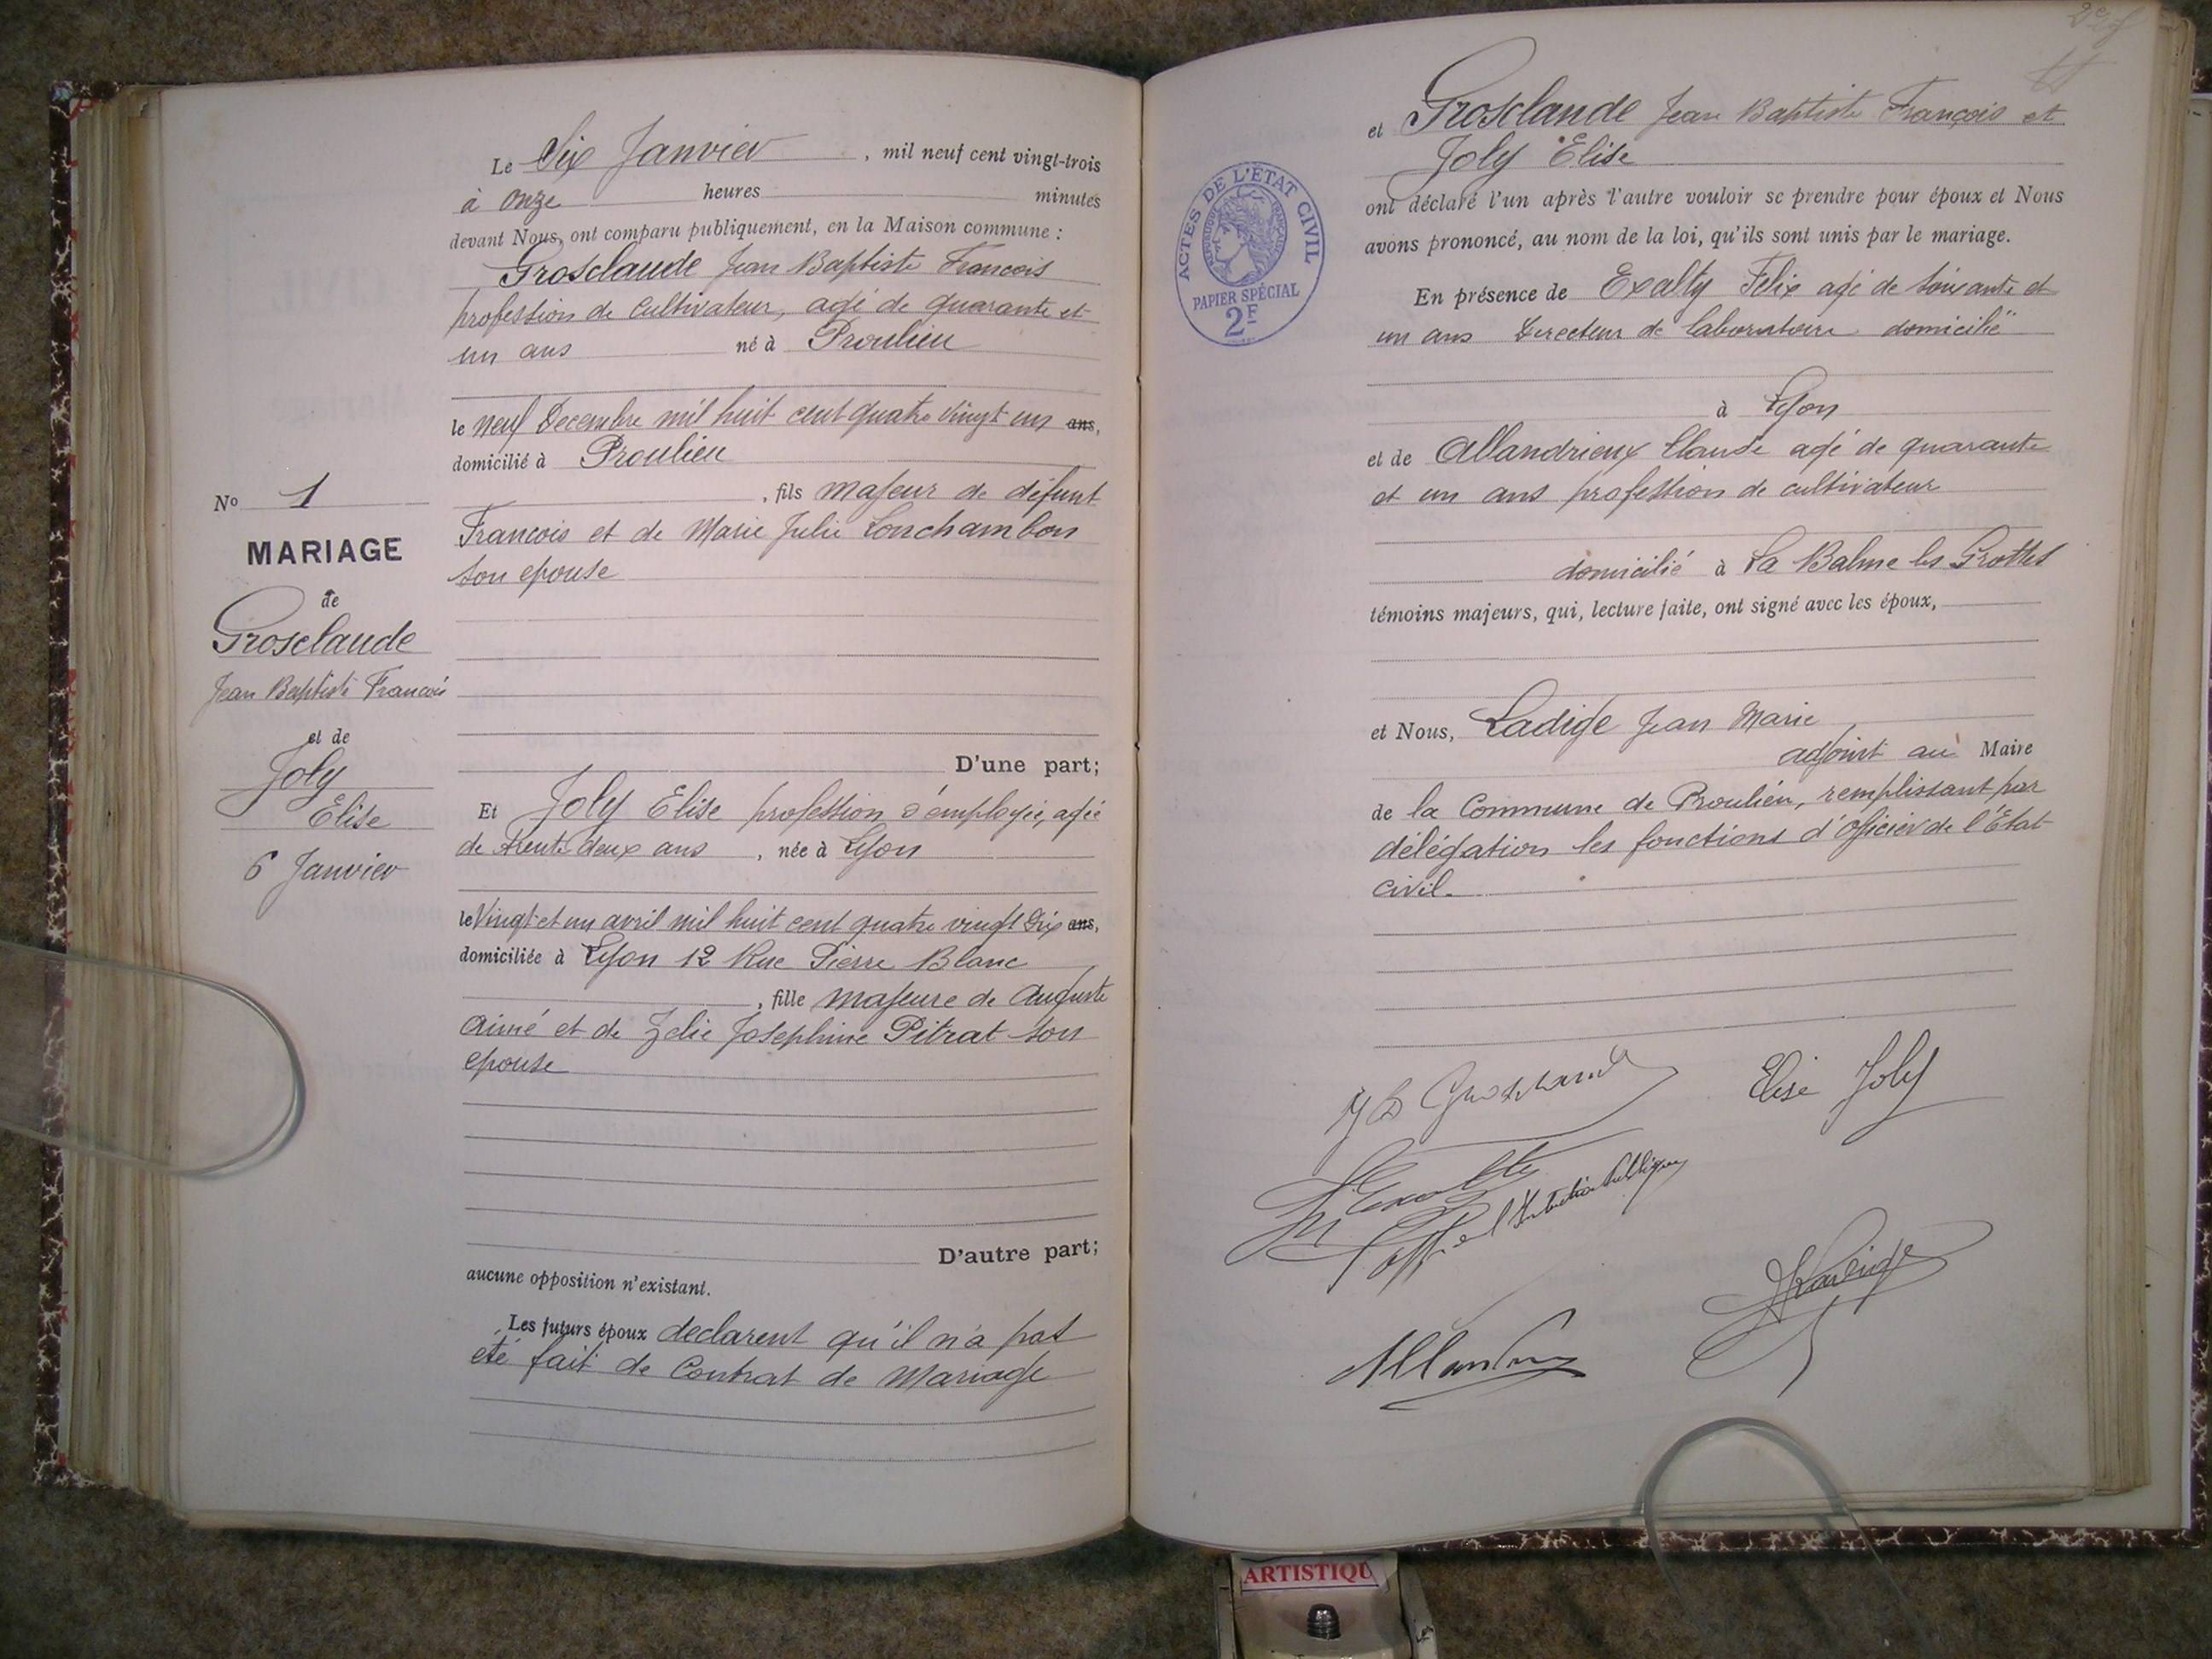 Le Six Janvier, mil neuf cent vingt-trois
à onze heures minutes
devant Nous, ont comparu publiquement, en la Maison commune :
Grosclaude Jean Baptiste Francois
profession de cultivateur, agé de quarante et
un ans né à Proulieu
le neuf Decembre mil huit cent quatre vingt un ans,
domicilié à Proulieu
, fils majeur de défunt
Francois et de Marie Julie Lonchambon
son epouse
D'une part;
Et Joly Elise profession d'employée, agée
de trente deux ans, née à Lyon
le Vingt et un avril mil huit cent quatre vingt dix ans,
domiciliée à Lyon 12 Rue Pierre Blanc
, fille majeure de Auguste
Aimé et de Zelie Josephine Pitrat son
epouse
D'autre part;
aucune opposition n'existant.
Les futurs époux declarent qu'il n'a pas
été fait de Contrat de Mariage
No 1
MARIAGE
de
Grosclaude
Jean Baptiste Francois
et de
Joly
Elise
6 Janvier
et Grosclaude Jean Baptiste François et
Joly Elise
ont déclaré l'un après l'autre vouloir se prendre pour époux et Nous
avons prononcé, au nom de la loi, qu'ils sont unis par le mariage.
En présence de Exalty Felix agé de soixante et
un ans Directeur de laboratoire domicilié
à Lyon
et de Allandrieux Claude agé de quarante
et un ans profession de cultivateur
domicilié à La Balme les Grottes
témoins majeurs, qui, lecture faite, ont signé avec les époux,
et Nous, Ladige Jean Marie
adjoint au Maire
de la Commune de Proulieu, remplissant par
délégation les fonctions d'officier de l'Etat
civil.
J B Grosclaude
Elise Joly
F. Exalty
Off. de l'Instruction Publique
ACTES DE L'ÉTAT CIVIL
RÉPUBLIQUE FRANÇAISE
PAPIER SPÉCIAL
2F
ARTISTIQU